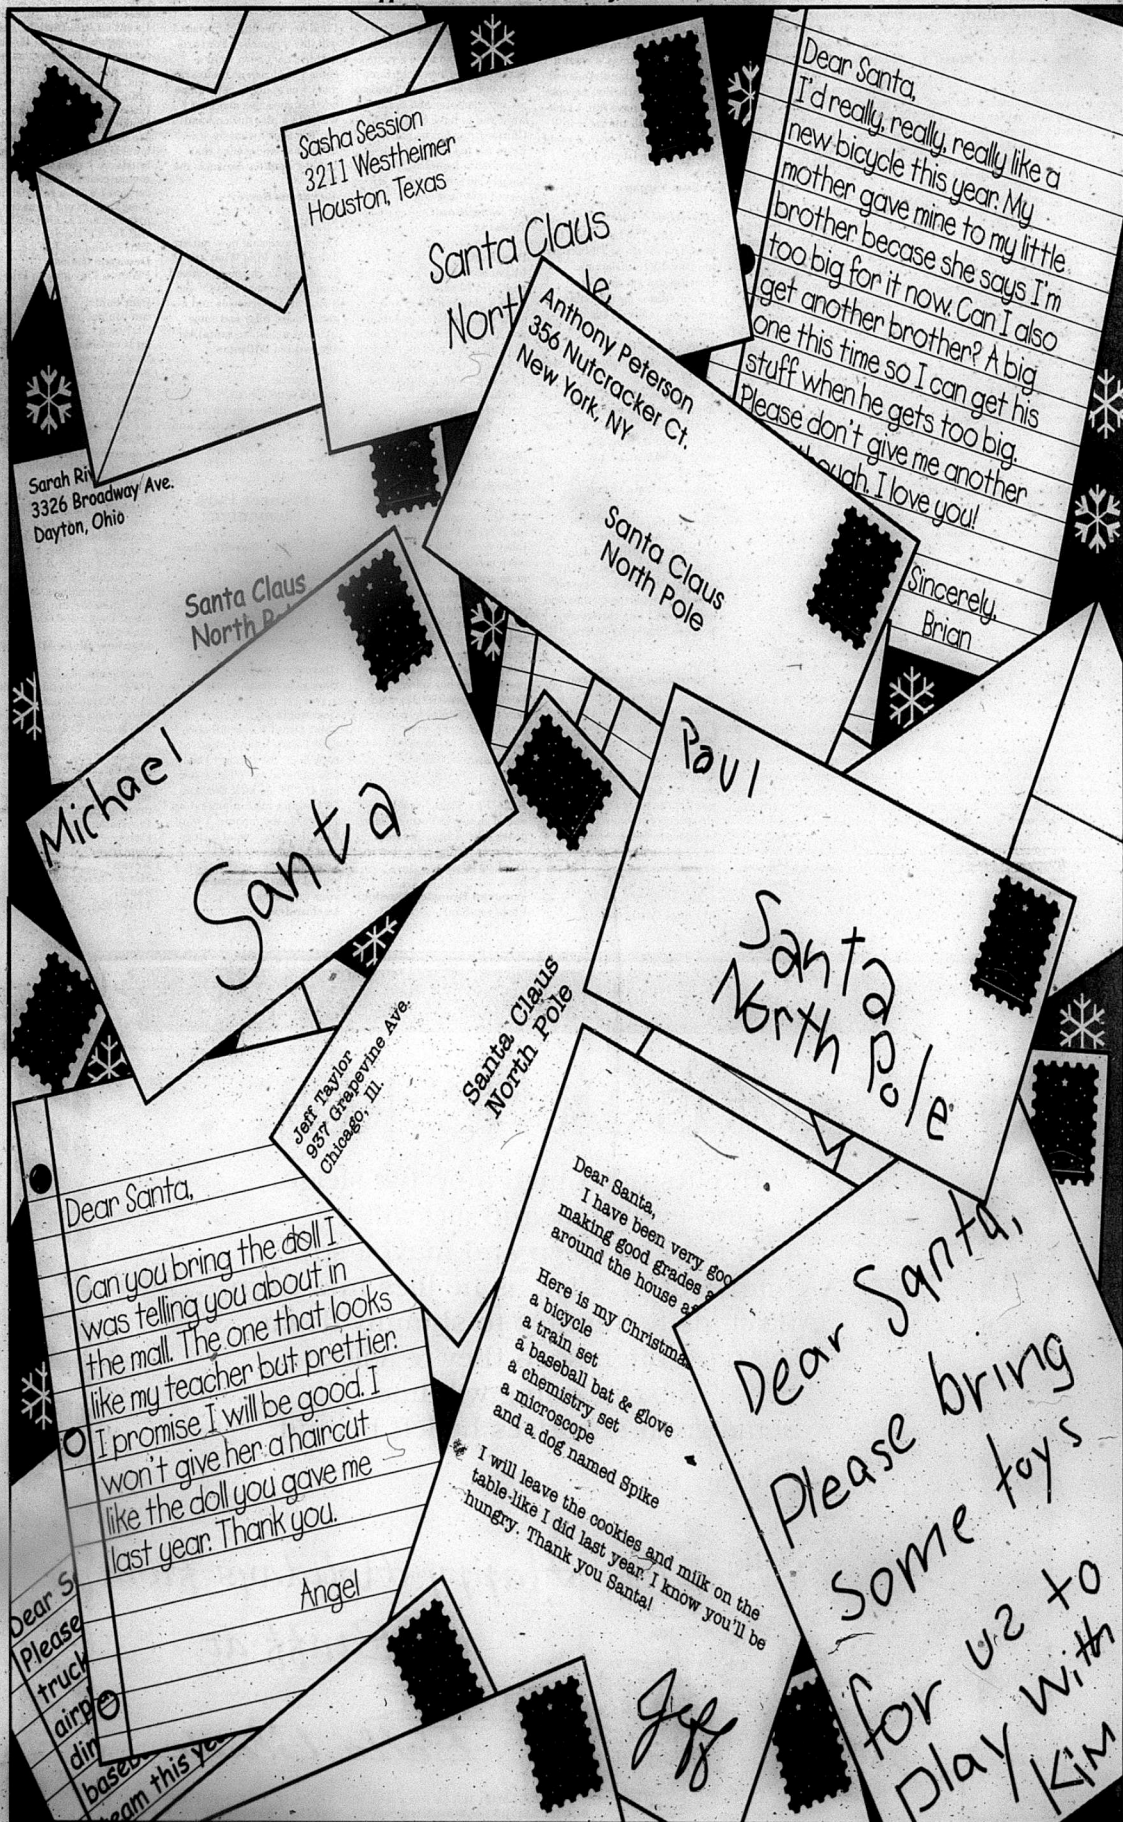 Sasha Session
3211 Westheimer
Houston, Texas
Santa Claus
Dear Santa,
I'd really, really, really like a
new bicycle this year. My
mother gave mine to my little
brother becase she says I'm
too big for it now. Can I also
get another brother? A big
one this time so I can get his
stuff when he gets too big.
Please don't give me another
though. I love you!
Sincerely,
Brian
Anthony Peterson
356 Nutcracker Ct.
New York, NY
Santa Claus
North Pole
Sarah
3326 Broadway Ave.
Dayton, Ohio
Santa Claus
North
Michael
Santa
Paul
Santa
North Pole
Jeff Taylor
937 Grapevine Ave.
Chicago, Ill.
Santa Claus
North Pole
Dear Santa,
Can you bring the doll I
was telling you about in
the mall. The one that looks
like my teacher but prettier.
I promise I will be good. I
won't give her a haircut
like the doll you gave me
last year. Thank you.
Angel
Dear Santa,
I have been very
making good grades
around the house
Here is my
a bicycle
a train set
a baseball bat & glove
a chemistry set
a microscope
and a dog named Spike
I will leave the cookies and milk on the
table like I did last year. I know you'll be
hungry. Thank you Santa!
Jeff
Dear Santa,
Please bring
some toys
for us to
play with
Kim
Dear
Please
truck
team this